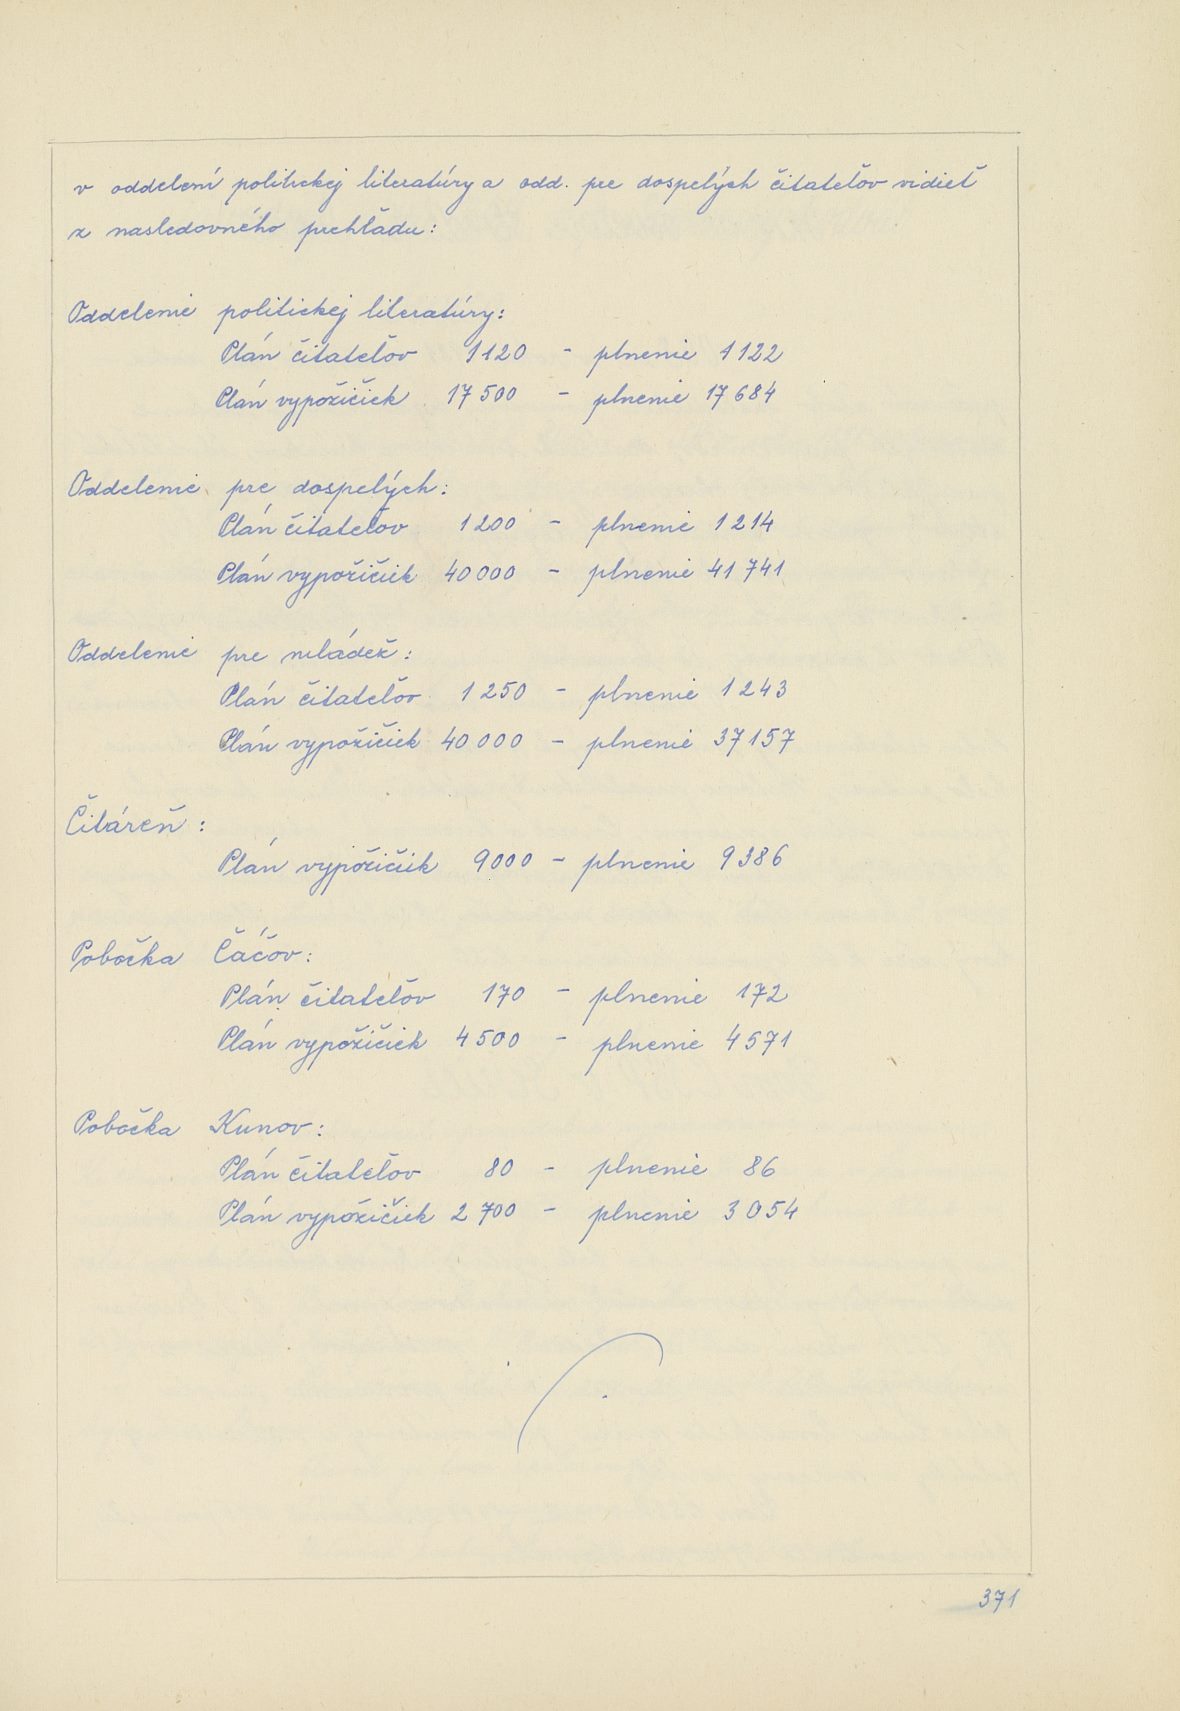 v oddelení politickej literatúry a odd. pre dospelých čitateľov vidieť
z nasledovného prehľadu:
Oddelenie politickej literatúry:
Plán čitateľov 1120 - plnenie 1122
Plán vypožičiek 17 500 - plnenie 17 684
Oddelenie pre dospelých:
Plán čitateľov 1 200 - plnenie 1 214
Plán vypožičiek 40 000 - plnenie 41 741
Oddelenie pre mládež:
Plán čitateľov 1 250 - plnenie 1 243
Plán vypožičiek 40 000 - plnenie 37 157
Čitáreň:
Plán vypožičiek 9000 - plnenie 9 386
Pobočka Čáčov:
Plán čitateľov 170 - plnenie 172
Plán vypožičiek 4 500 - plnenie 4 571
Pobočka Kunov:
Plán čitateľov 80 - plnenie 86
Plán vypožičiek 2 700 - plnenie 3 054
371